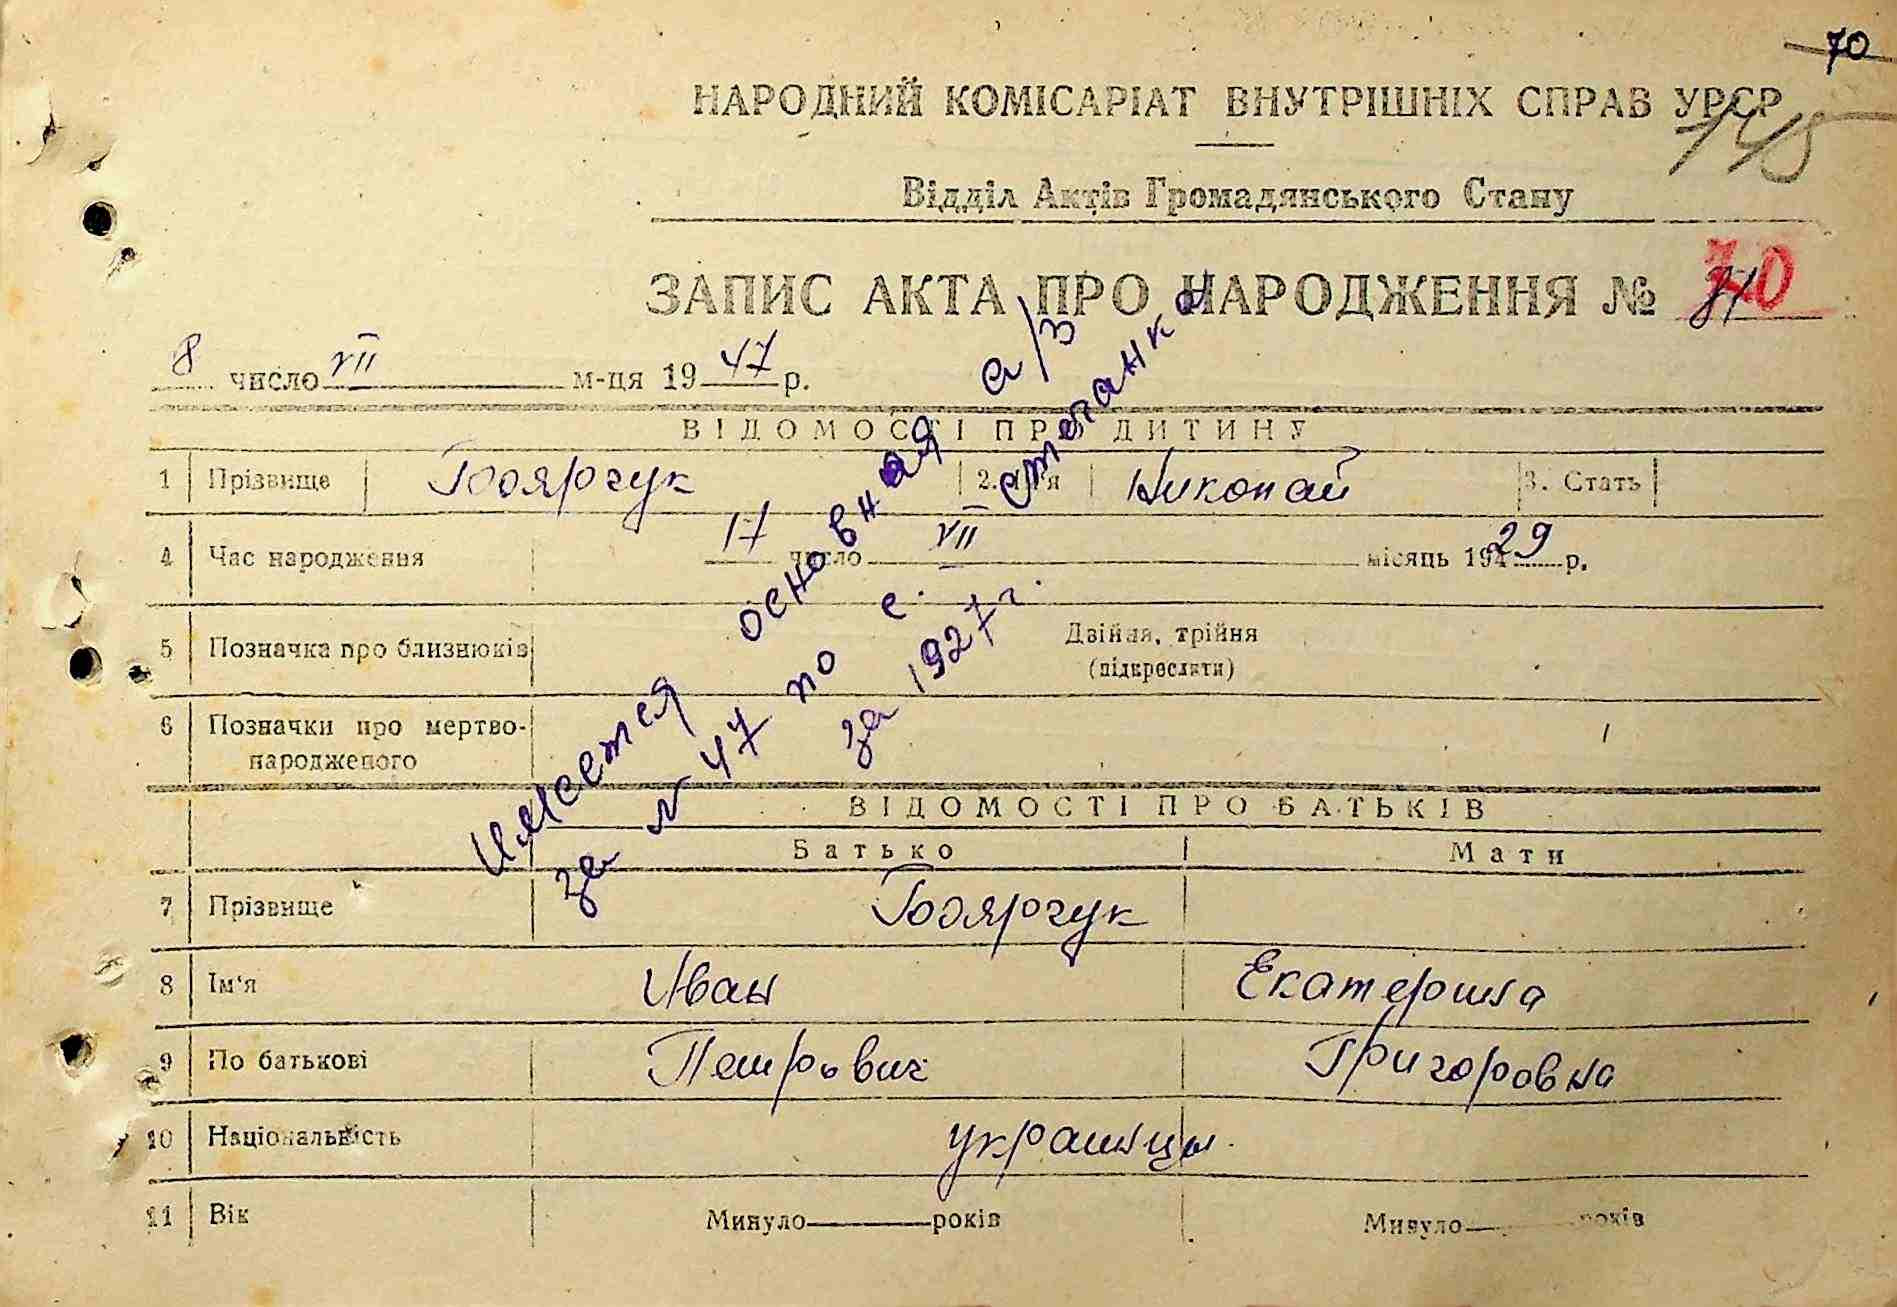 70
НАРОДНИЙ КОМІСАРІАТ ВНУТРІШНІХ СПРАВ УРСР
145
Відділ Актів Громадянського Стану
ЗАПИС АКТА ПРО НАРОДЖЕННЯ № 70
8 число VII м-ця 1947 р.
ВІДОМОСТІ ПРО ДИТИНУ
1 Прізвище Боярчук 2. Ім'я Николай 3. Стать
4 Час народження 17 число VII місяць 1929 р.
5 Позначка про близнюків Двійня, трійня
(підкреслити)
6 Позначки про мертво-
народженого
Имеется основная а/з
за N 47 по с.
за 1927 г.
ВІДОМОСТІ ПРО БАТЬКІВ
Батько Мати
7 Прізвище Боярчук
8 Ім'я Иван Екатерина
9 По батькові Петрович Григоровна
10 Національність украинцы
11 Вік Минуло років Минуло років